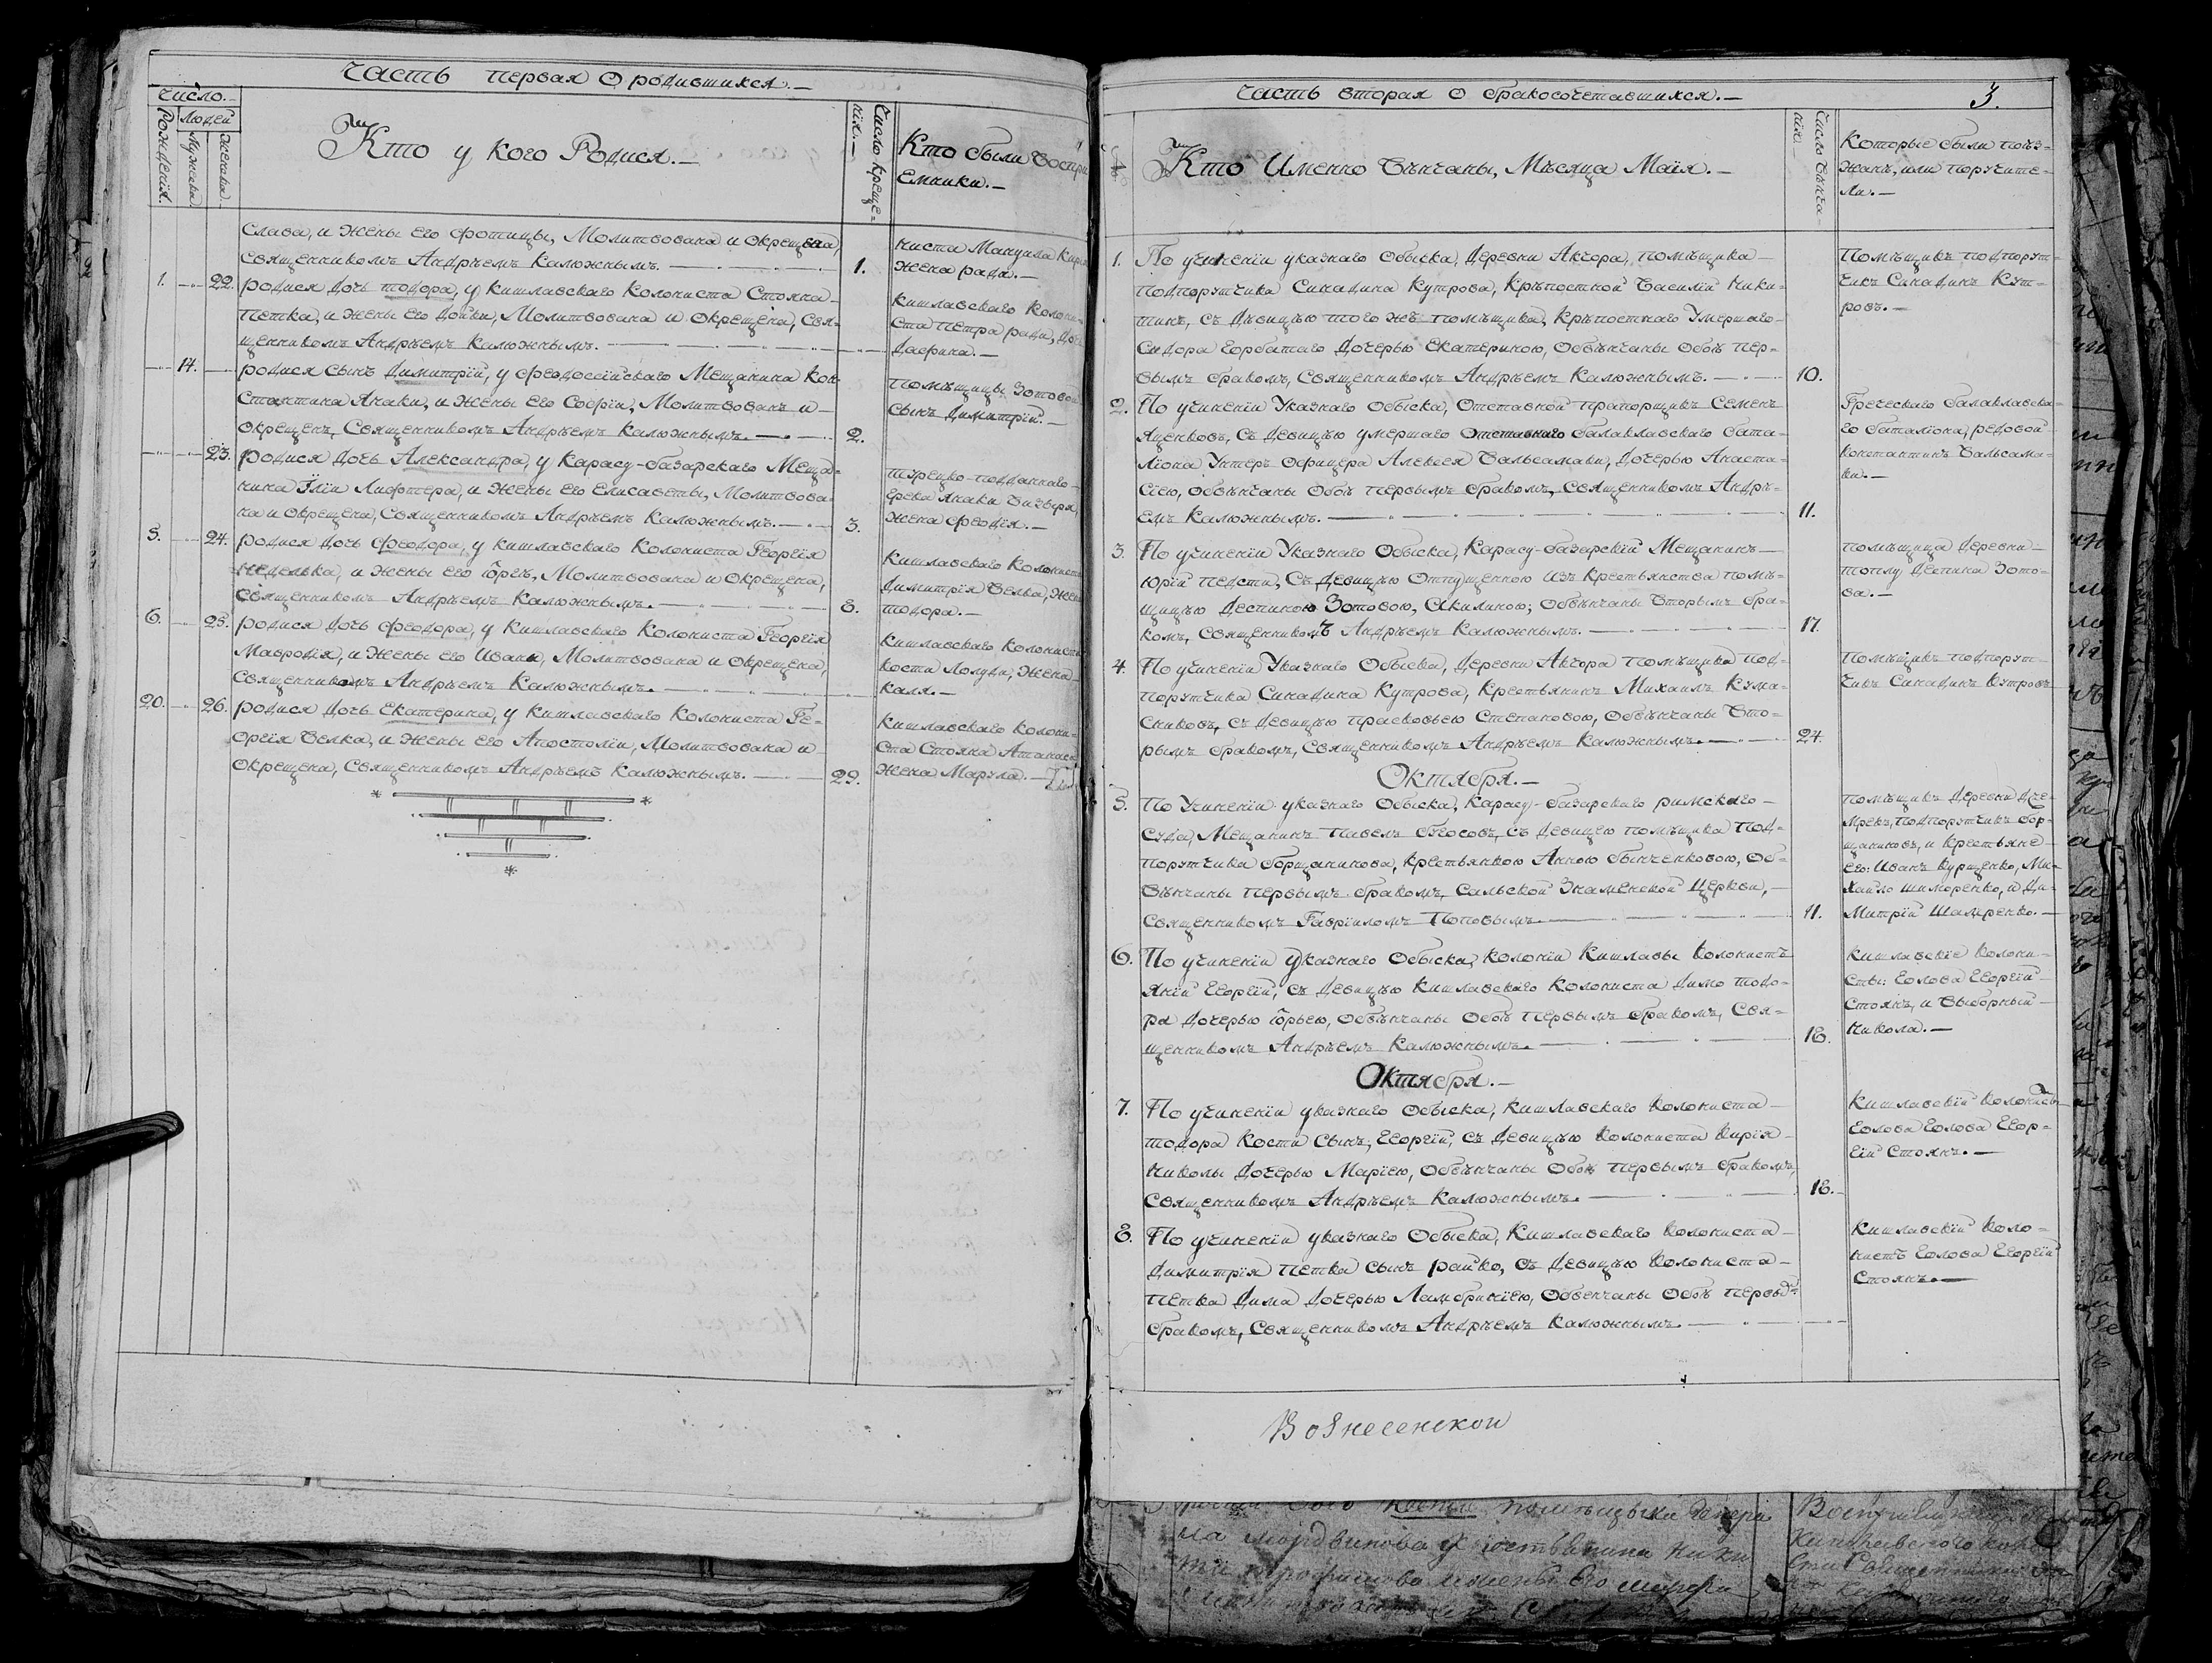 Часть первая О родившихся.—
Число.—
Рождения.
Людей
Мужеска
Женска.
Кто у кого Родися.—
Число Креще=
нія.—
Кто были Воспри
Емники.—
Слава, и Жены Его Фотицы, Молитвована и Окрещена,
Священникомъ Андрѣемъ Калюжнымъ.
1.
ниста Мануила
жена рада.—
1. 22. родися Дочь тодора, у Кишлавскаго Колониста Стояна
Петка, и Жены Его Дойки, Молитвована и Окрещена, Свя=
щенникомъ Андрѣемъ Калюжнымъ.
Кишлавскаго Колони=
ста Петра ради, До
Дафина.—
14. родися Сынъ Димитрій, у Феодоссійскаго Мещанина Кон=
стантина Янаки, и Жены Его Софіи, Молитвованъ и
Окрещенъ, Священникомъ Андрѣемъ Калюжнымъ.
2.
Помѣщицы Зотовой
сынъ Димитрій.—
23. родися Дочь Александра, у Карасу-базарскаго Меща=
нина Іліи Лифтера, и Жены Его Елисаветы, Молитвова=
на и Окрещена, Священникомъ Андрѣемъ Калюжнымъ.
3.
турецко-подданнаго
Грека Янаки
Жена Феодія.—
5. 24. родися Дочь Феодора, у Кишлавскаго Колониста Георгія
Неделька, и Жены Его Юргѣ, Молитвована и Окрещена,
Священникомъ Андрѣемъ Калюжнымъ.
8.
Кишлавскаго Колониста
Димитрія Велка, Жена
тодора.—
6. 25. родися Дочь Феодора, у Кишлавскаго Колониста Георгія
Мавродія, и Жены Его Иваны, Молитвована и Окрещена,
Священникомъ Андрѣемъ Калюжнымъ.
Кишлавскаго Колониста
Коста Лолуди, Жена
Каля.—
20. 26. родися Дочь Екатерина, у Кишлавскаго Колониста Ге=
оргія Велка, и Жены Его Апостоліи, Молитвована и
Окрещена, Священникомъ Андрѣемъ Калюжнымъ.
29.
Кишлавскаго Колони=
ста Стояна Атанаса
Жена Марула.—
Часть вторая О бракосочетавшихся.—
3.
Кто Именно Вѣнчаны, Мѣсяца Маія.—
Число Вѣнча=
нія.—
Которые были поѣз=
жанѣ, или поручите=
ли.—
1. По учиненіи указнаго Обыска, Деревни Акчора, помѣщика
Подпоручика Синадина Кутрова, Крѣпостной Василій Ники=
тинъ, съ Дѣвицѣю того жъ помѣщика, Крѣпостнаго Умершаго
Сидора Горбатаго Дочерью Екатериною, Обвѣнчаны Обоѣ пер=
вымъ бракомъ, Священникомъ Андрѣемъ Калюжнымъ.
10.
Помѣщикъ подпорут=
чикъ Синадинъ Кут=
ровъ.—
2. По учиненіи Указнаго Обыска, Отставной прапорщикъ Семенъ
Яценковъ, съ Девицѣю умершаго Отставнаго балаклавскаго бата=
ліона Унтеръ Офицера Алексея Вальсамаки, Дочерью Анаста=
сіею, обвѣнчаны Обоѣ первымъ бракомъ, Священникомъ Андрѣ=
емъ Калюжнымъ.
11.
Греческаго балаклавска=
го баталіона, редовой
Константинъ Вальсама=
ки.—
3. По учиненіи Указнаго Обыска, Карасу-базарскій Мещанинъ
Юрій Педсти, Съ Девицѣю Отпущенною изъ Крестьянства помѣ=
щицѣю Деспиною Зотовою, Акилиною; Обвѣнчаны Вторымъ бра=
комъ, Священникомъ Андрѣемъ Калюжнымъ.
17.
помѣщица Деревни
топлу Деспина Зото=
ва.—
4. По учиненіи Указнаго Обыска, Деревни Акчора помѣщика под=
порутчика Синадина Кутрова, Крестьянинъ Михаилъ Кума=
сниковъ, съ Девицѣю прасковьею Степановою, Обвѣнчаны Вто=
рымъ бракомъ, Священникомъ Андрѣемъ Калюжнымъ.
24.
Помѣщикъ подпорут=
чикъ Синадинъ Кутровъ
Октября.—
5. По Учиненіи указнаго Обыска, Карасу-базарскаго римскаго
Суда, Мещанинъ Павелъ Богосовъ, съ Девицею помѣщика под=
порутчика Борщаникова, Крестьянкою Анною Бынченковою, Об=
вѣнчаны первымъ бракомъ, Сальской Знаменской Церкви,
Священникомъ Гавріиломъ Поповымъ.
11.
помѣщикъ Деревни Дже=
мрекъ, подпорутчикъ Бор=
щаниковъ, и Крестьяне
его: Иванъ Курщенко, Ми=
хайло Шиморенко, и Ди=
митрій Шамренко.—
6. По учиненіи указнаго Обыска, Колоніи Кишлавы Колонистъ
Яній Георгій, съ Девицѣю Кишлавскаго Колониста Димо тодо=
ра Дочерью Юрьею, Обвѣнчаны Обоѣ первымъ бракомъ, Свя=
щенникомъ Андрѣемъ Калюжнымъ.
18.
Кишлавскіе Колони=
сты: Голова Георгій
Стоянъ, и Выборный
Никола.—
Октября.—
7. По учиненіи указнаго Обыска, Кишлавскаго Колониста
тодора Кости Сынъ, Георгій, съ Девицѣю Колониста Кирія
Николы Дочерью Маріею, Обвѣнчаны Обоѣ первымъ бракомъ,
Священникомъ Андрѣемъ Калюжнымъ.
18.
Кишлавскій Колонистъ
Голова Голова Геор=
гій Стоянъ.—
8. По учиненіи указнаго Обыска, Кишлавскаго Колониста
Димитрія Петка Сынъ Райко, съ Девицѣю Колониста
Петка Дима Дочерью Ламбриніею, Обвенчаны Обоѣ первы
бракомъ, Священникомъ Андрѣемъ Калюжнымъ.
Кишлавскій Коло=
нистъ Голова Георгій
Стоянъ.—
Вознесенскои